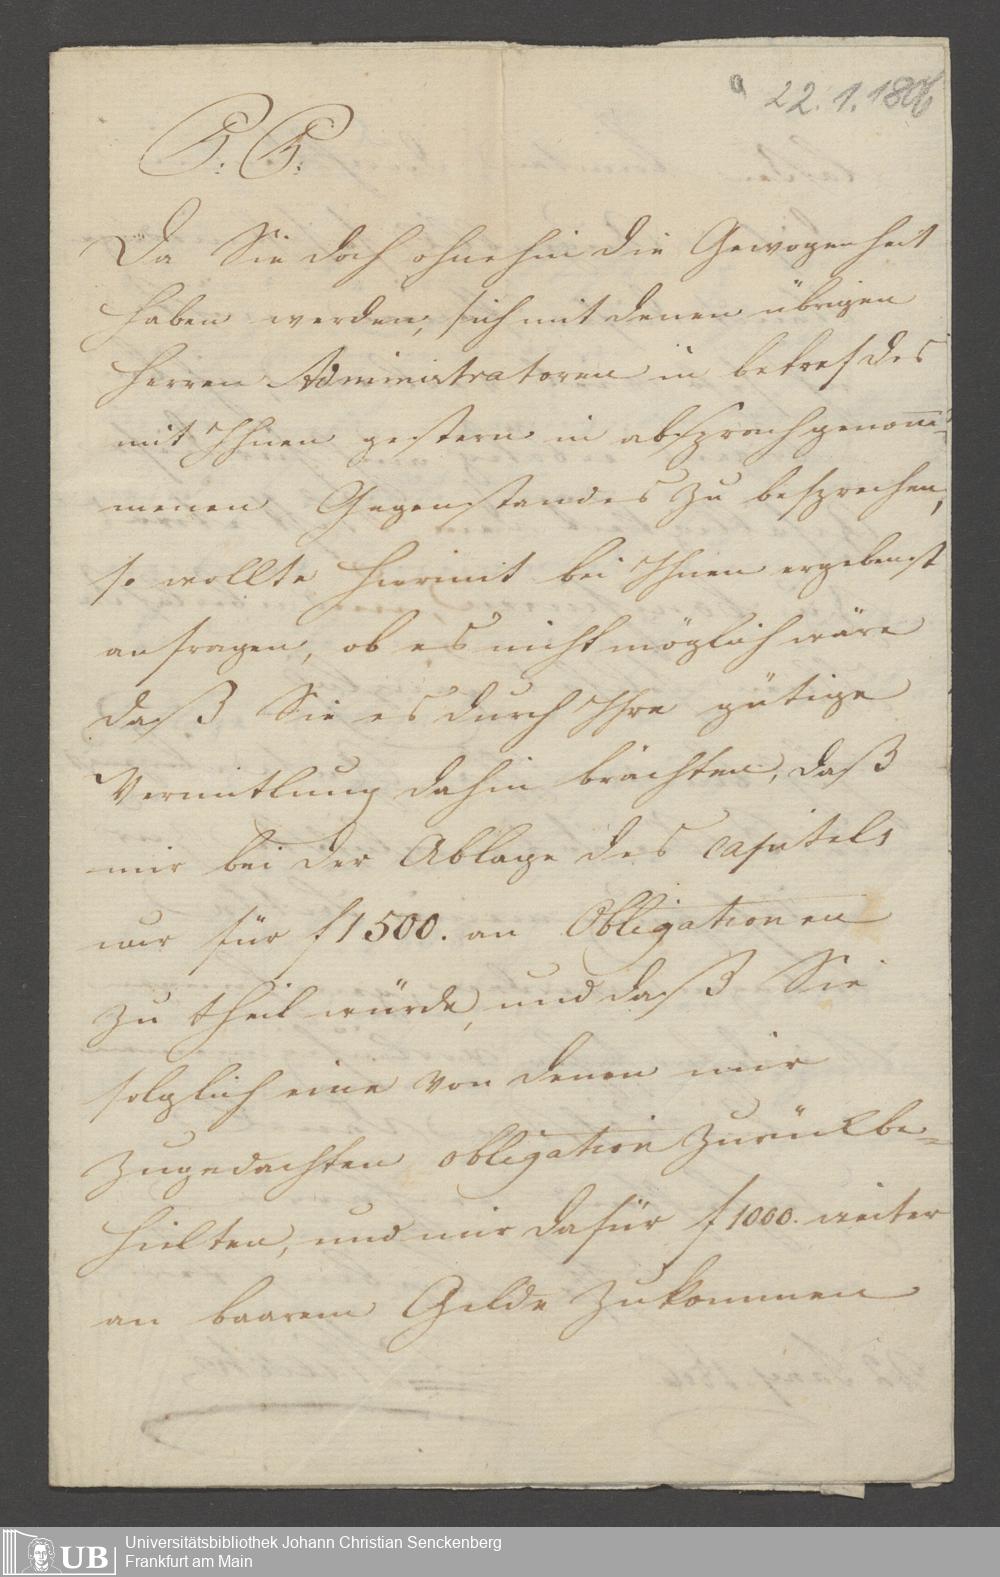 22.1.1806
P. P.
Da Sie doch ohnehin die Gewogenheit
haben werden, sich mit denen übrigen
Herren Administratoren in betref des
mit Ihnen gestern in absprach genom-
menen Gegenstandes zu besprechen,
so wollte hiermit bei Ihnen ergebenst
anfragen, ob es nicht möglich wäre
daß Sie es durch Ihre gütige
Vermitlung dahin brächten, daß
mir bei der Ablage des Capitels
nur für f 1500. an Obligationen
zu theil würde, und daß Sie
folglich eine von denen mir
zugedachten obligation zurückbe-
hielten, und mir dafür f 1000. weiter
an baarem Gelde zukommen
UB
Universitätsbibliothek Johann Christian Senckenberg
Frankfurt am Main